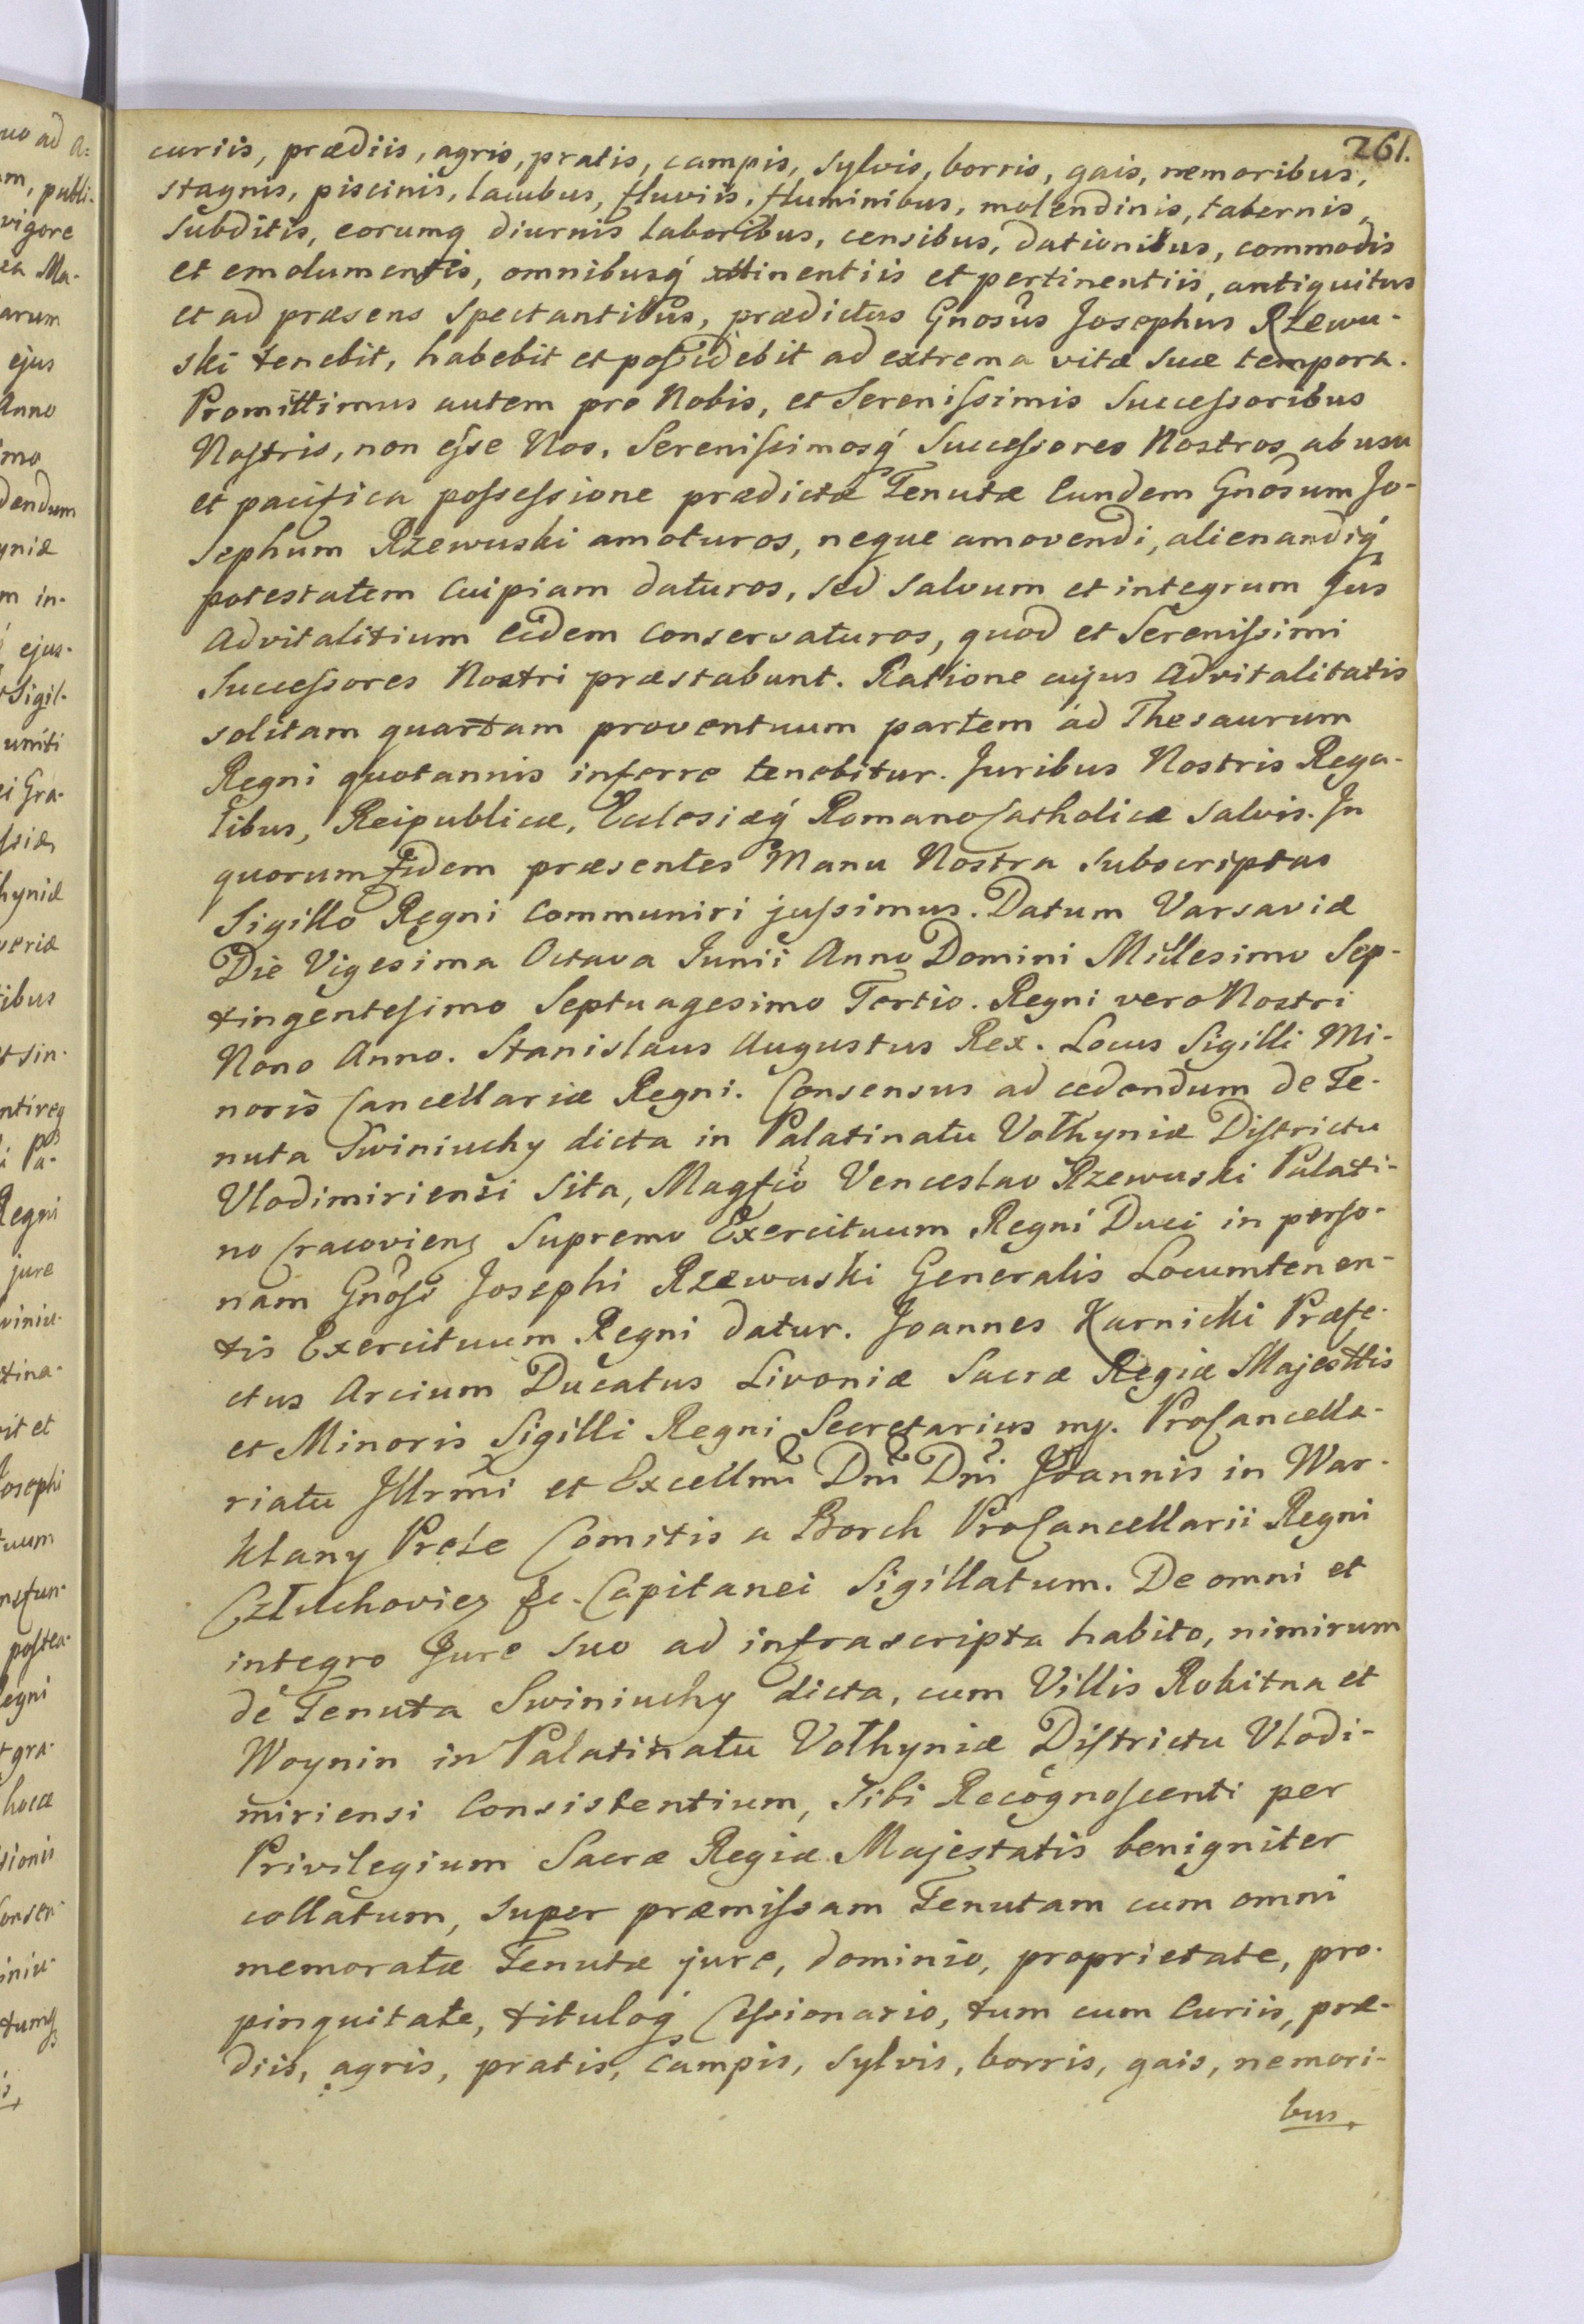 261.
curiis, prædiis, agris, pratis, campis, sylvis, borris, gais, nemoribus,
stagnis, piscinis, lacubus, fluviis, fluminibus, molendinis, tabernis,
subditis, eorumq́ diurnis laboribus, censibus, dationibus, commodis
et emolumentis, omnibusq́ attinentiis et pertinentiis, antiquitus
et ad præsens spectantibus, prædictus Gnosus Josephus Rzewu-
ski tenebit, habebit et poſsidebit ad extrema vitæ suæ tempora.
Promittimus autem pro Nobis, et Sereniſsimis Succeſsoribus
Noſtris, non eſse Nos, Sereniſsimosq́ Succeſsores Nostros ab usu
et pacifica poſseſsione prædictæ Tenutæ Eundem Gnosum Jo-
sephum Rzewuski amoturos, neque amovendi, alienandiq́
potestatem cuipiam daturos, sed salvum et integrum Jus
Advitalitium eidem conservaturos, quod et Sereniſsimi
Succeſsores Nostri præstabunt. Ratione cujus Advitalitatis
solitam quartam proventuum partem ad Thesaurum
Regni quotannis inferre tenebitur. Juribus Nostris Rega-
libus, Reipublicæ, Ecclesiæq́ Romano Catholicæ salvis. In
quorum fidem præsentes Manu Nostra subscriptas
Sigillo Regni communiri juſsimus. Datum Varsaviæ
Die Vigesima Octava Junii Anno Domini Millesimo Sep-
tingenteſimo Septuagesimo Tertio. Regni vero Nostri
Nono Anno. Stanislaus Augustus Rex. Locus Sigilli Mi-
noris Cancellariæ Regni. Consensus ad cedendum de Te-
nuta Swiniuchy dicta in Palatinatu Volhyniæ Diſtrictu
Vlodimiriensi sita, Magfico Venceslao Rzewuski Palati-
no Cracoviens Supremo Exercituum Regni Duci in perſo-
nam Gnoſi Josephi Rzewuski Generalis Locumtenen-
tis Exercituum Regni datur. Joannes Karnicki Præfe-
ctus Arcium Ducatus Livoniæ Sacræ Regiæ Majesttis
et Minoris Sigilli Regni Secretarius mp. ProCancella-
riatu Illrmi et Excellmi Dni Dni Joannis in War-
klany Prele Comitis a Borch ProCancellarii Regni
Człuchovien &c. Capitanei Sigillatum. De omni et
integro Jure suo ad infrascripta habito, nimirum
de Tenuta Swiniuchy dicta, cum Villis Rokitna et
Woynin in Palatinatu Volhyniæ Diſtrictu Vlodi-
miriensi consistentium, Sibi Recognoſcenti per
Privilegium Sacræ Regiæ Majestatis benigniter
collatum, super præmiſsam Tenutam cum omni
memoratæ Tenutæ jure, dominio, proprietate, pro-
pinquitate, tituloq́ Ceſsionario, tum cum Curiis, præ-
diis, agris, pratis, campis, sylvis, borris, gais, nemori-
bus,